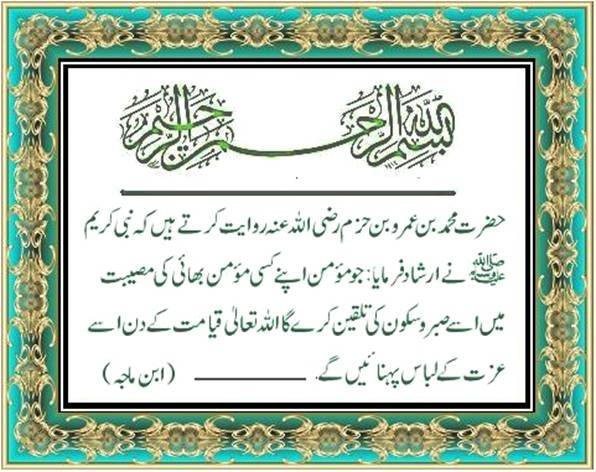 بسم اللہ الرحمن الرحیم
حضرت محمد بن عمرو بن حزم رضی اللہ عنہ روایت کرتے ہیں کہ نبی کریم
ﷺ نے ارشاد فرمایا: جو مؤمن اپنے کسی مؤمن بھائی کی مصیبت
میں اسے صبر و سکون کی تلقین کرے گا اللہ تعالیٰ قیامت کے دن اسے
عزت کے لباس پہنائیں گے۔ (ابن ماجہ)